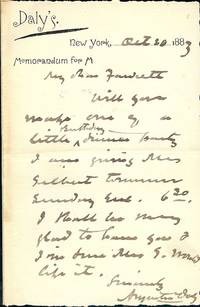 Daly's.
New York, Oct 20 1883
Memorandum for M
My dear Fawcett
Will you
make one of a
little Birthday dinner party
I am giving Mrs
Gilbert tomorrow
Sunday Eve. 6 30.
I shall be very
glad to have you &
I'm sure Mrs G. would
like it.
Sincerely
Augustin Daly